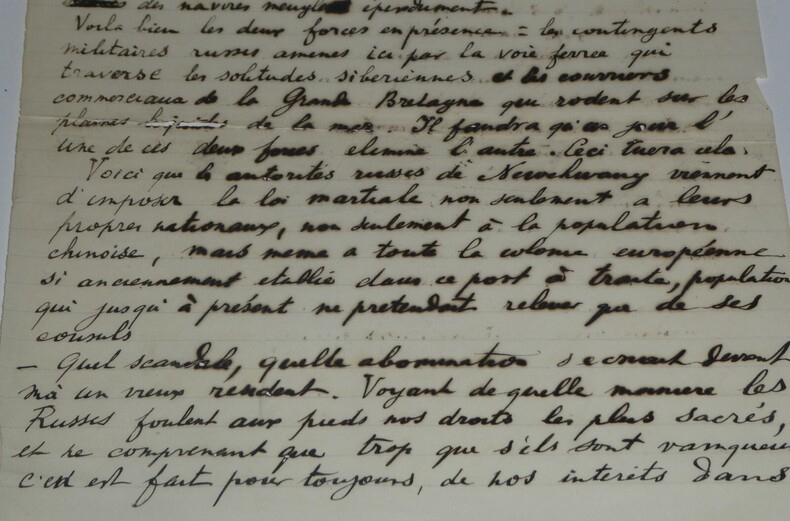 des navires meugle épendument.
Voila bien les deux forces en présence = les contingents
militaires russes amenes ici par la voie ferree qui
traverse les solitudes siberiennes et les courriers
commerciaux de la Grande Bretagne que rodent sur les
plaines liquides de la mer. Il faudra qu'un jour l'
une de ces deux forces elimine l'autre. Ceci tuera cela.
Voici que les autorités russes de Newchwang viennent
d'imposer la loi martiale non seulement a leurs
propres nationaux, non seulement à la population
chinoise, mais meme a toute la colonie européenne
si anciennement etablie dans ce port à traité, population
qui jusqu'à présent ne pretendait relever que de ses
consuls
- Quel scandale, quelle abomination s'ecriait devant
mà un vieux resident. Voyant de quelle maniere les
Russes foulent aux pieds nos droits les plus sacrés,
et ne comprenant que trop que s'ils sont vainqueurs
c'en est fait pour toujours, de nos interets dans